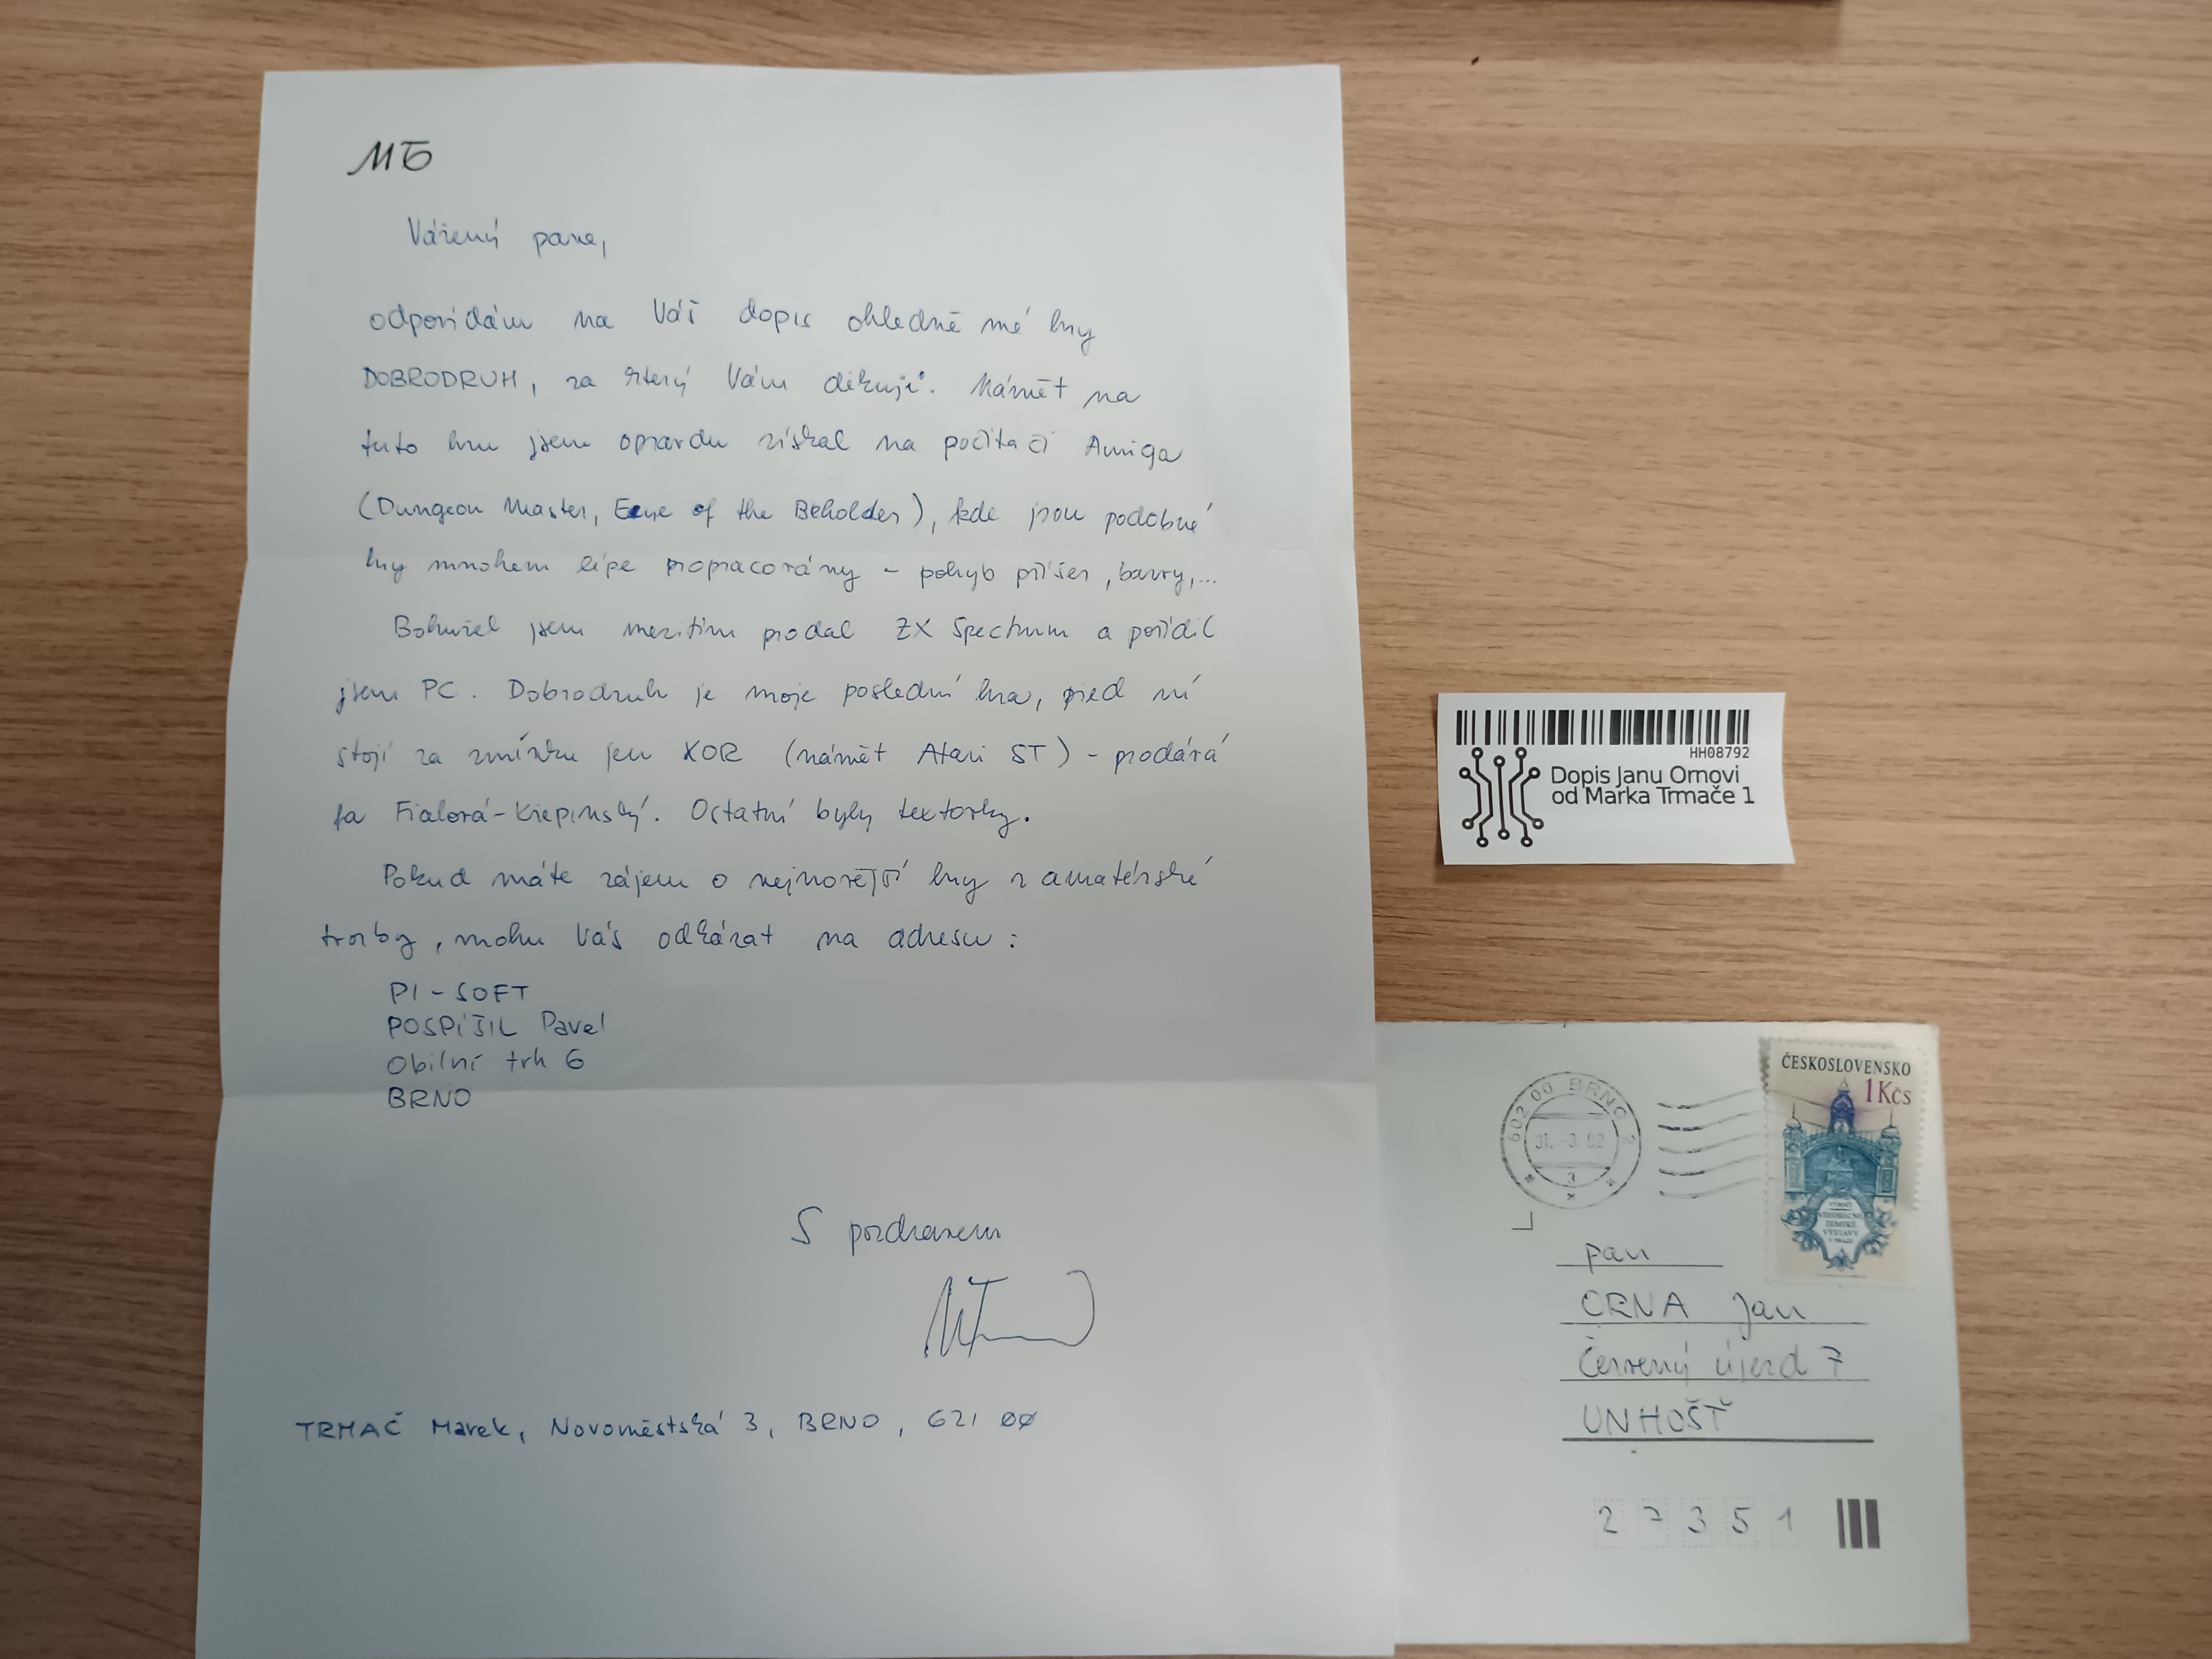 MT
Vážený pane,
odpovídám na Váš dopis ohledně mé hry
DOBRODRUH, za který Vám děkuji. Námět na
tuto hru jsem opravdu získal na počítači Amiga
(Dungeon Master, Eye of the Beholder), kde jsou podobné
hry mnohem lépe propracovány - pohyb příšer, barvy,...
Bohužel jsem mezitím prodal ZX Spectrum a pořídil
jsem PC. Dobrodruh je moje poslední hra, před ní
stojí za zmínku jen XOR (námět Atari ST) - prodává
fa Fialová-Křepinský. Ostatní byly textovky.
Pokud máte zájem o nejnovější hry z amatérské
tvorby, mohu Vás odkázat na adresu:
PI-SOFT
POSPÍŠIL Pavel
Obilní trh 6
BRNO
S pozdravem
TRMAČ Marek, Novoměstská 3, BRNO, 621 00
HH08792
Dopis Janu Ornovi
od Marka Trmače 1
602 00 BRNO 2
31.-3.92
3
ČESKOSLOVENSKO
1 Kčs
VŠEOBECNÉ
ZEMSKÉ
VÝSTAVY
V PRAZE
pan
ORNA Jan
Červený újezd 7
UNHOŠŤ
27351